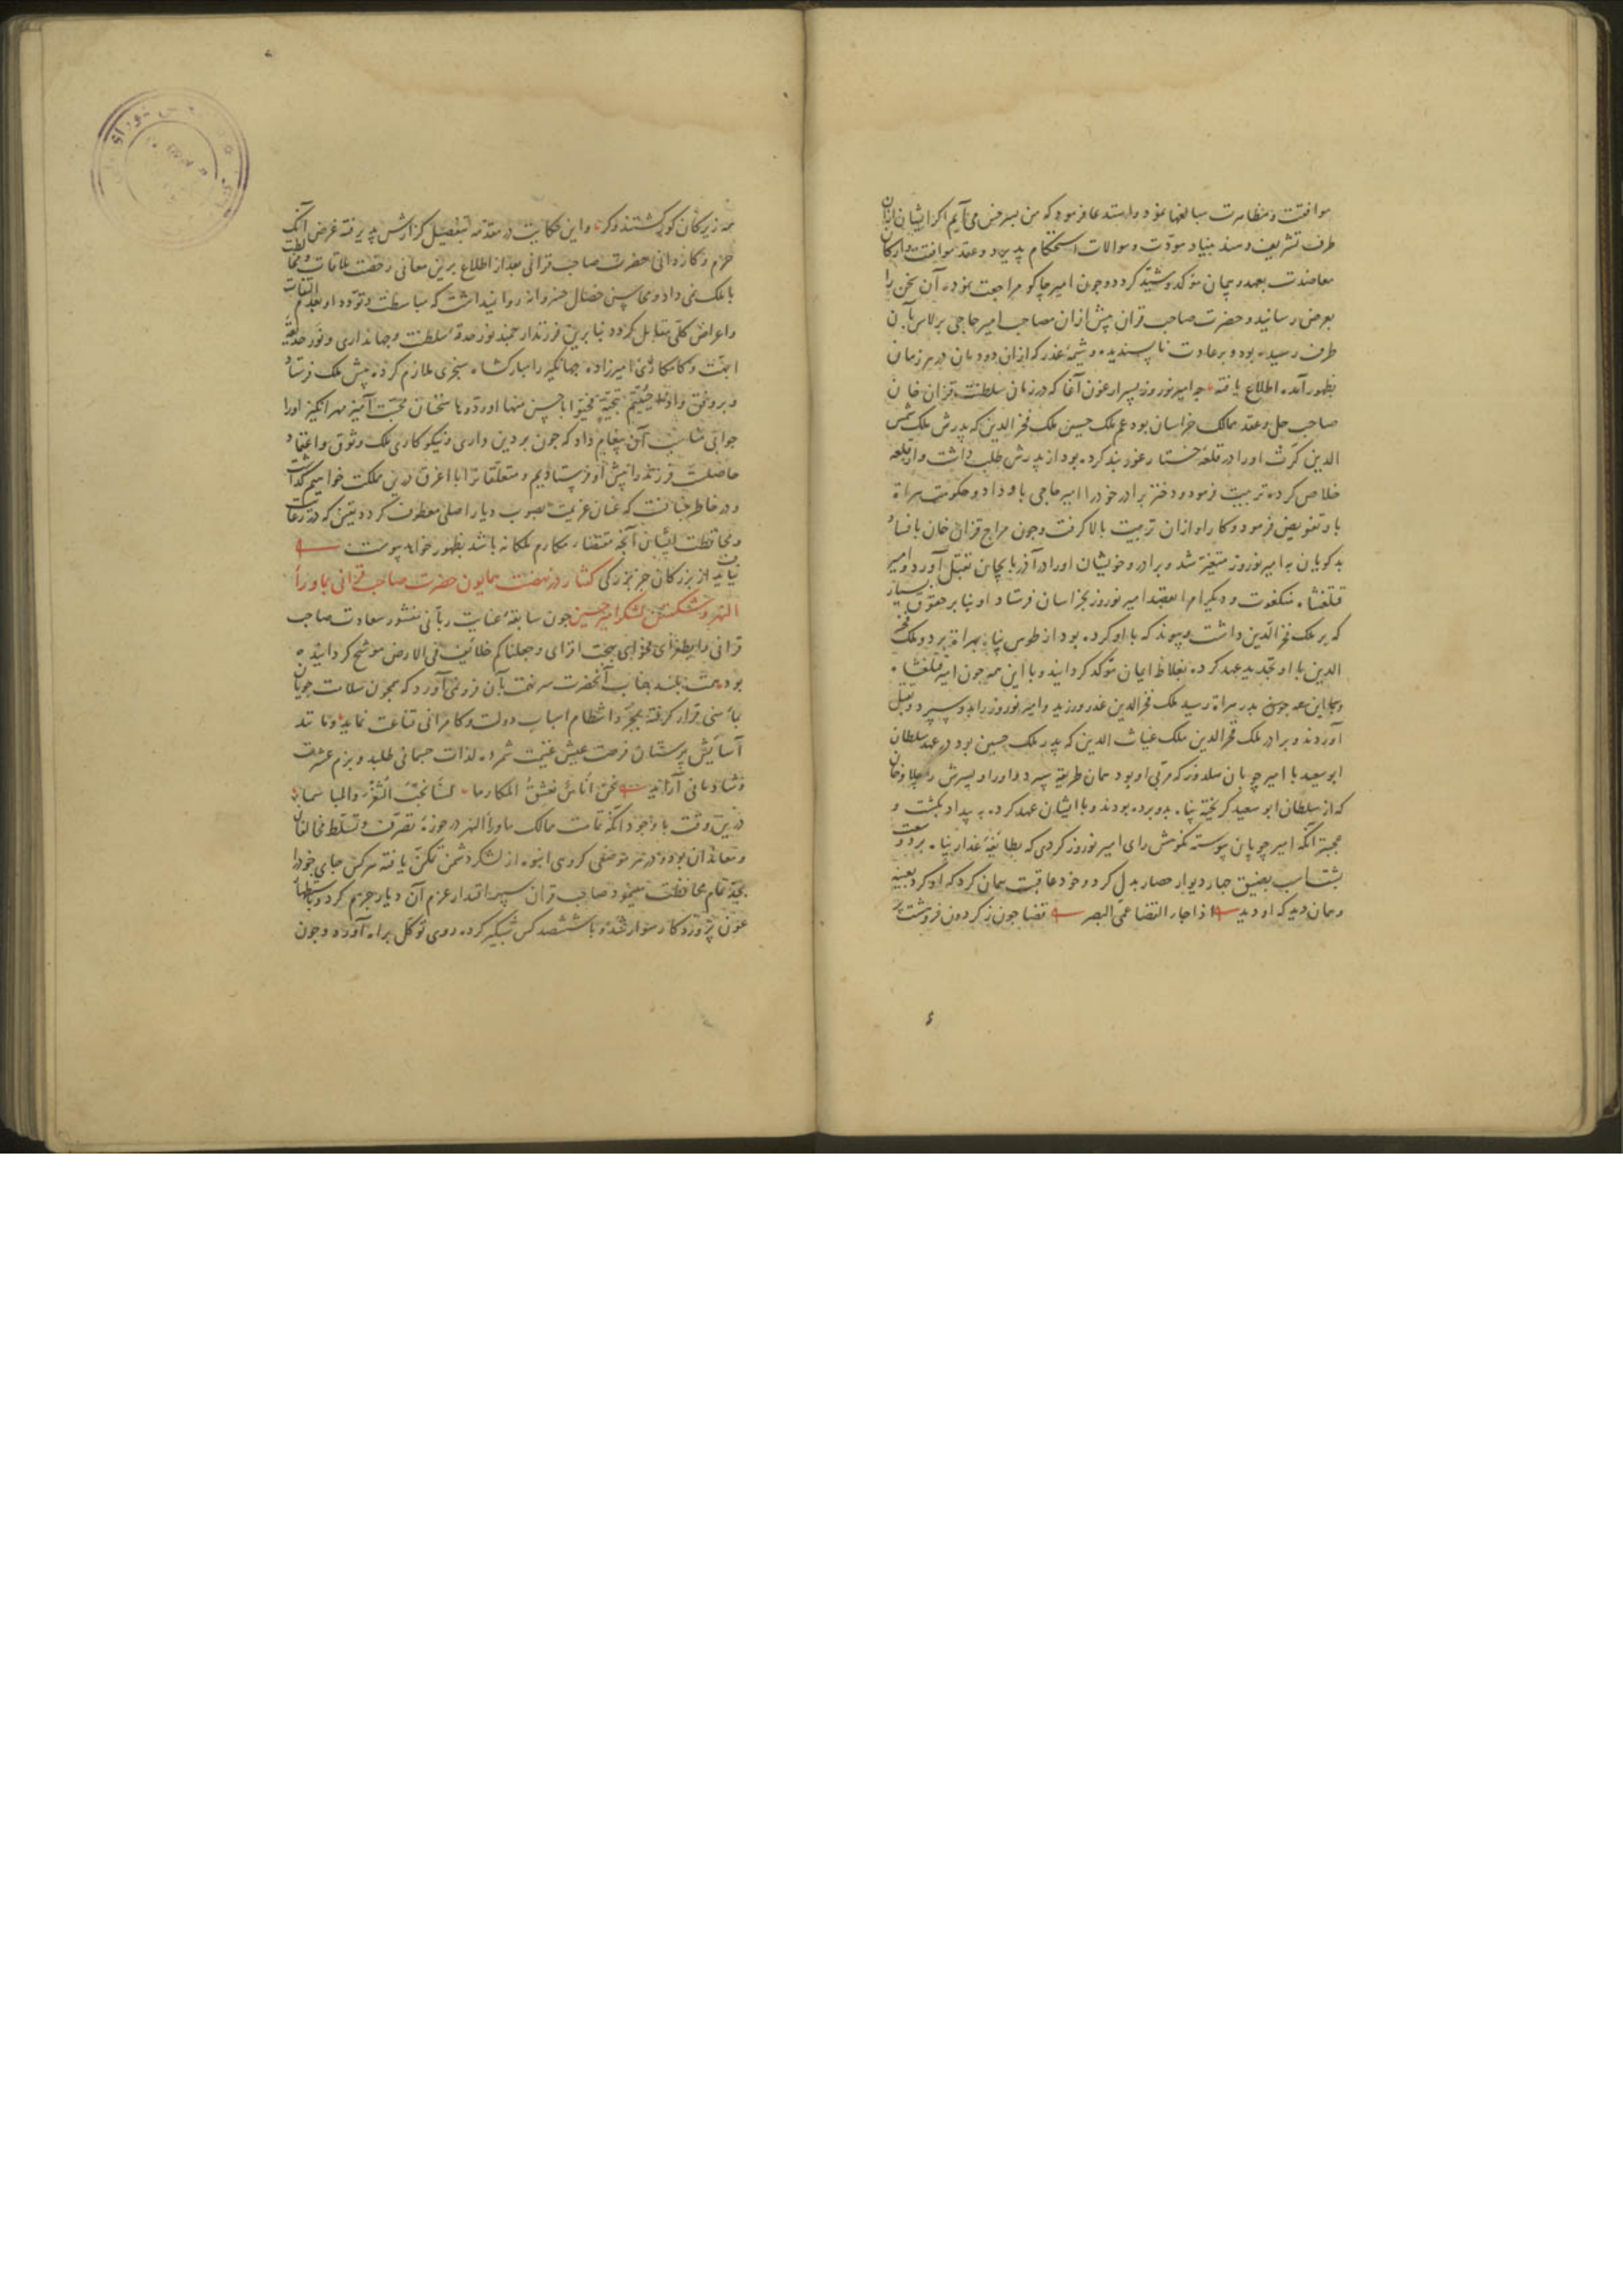 موافقت و مظاهرت مبالغها نمود و استدعا فرمود که من بسرخس می آیم اگر ایشان ازان
طرف تشریف دهند بنیاد مودّت و موالات استحکام پذیرد و عقد موافقت و ارکان
معاضدت بعهد و پیمان موکد و مشیّد گردد و چون امیر جاکو مراجعت نموده آن سخن را
بعرض رسانید و حضرت صاحب قران پیش ازان مصاحب امیر حاجی برلاس بآن
طرف رسیده بود و بر عادت ناپسندیده و شیمهٔ غدر که ازان دودمان در هر زمان
بظهور آمده اطلاع یافته چه امیر نوروز پسر ارغون آغا که در زمان سلطنت قزان خان
صاحب حل و عقد ممالک خراسان بود عم ملک حسین ملک فخر الدین که پدرش ملک شمس
الدین کرت اورا در قلعه خستار غور بند کرده بود از پدرش طلب داشت و از قلعه
خلاص کرده تربیت فرمود و دختر برادر خود را امیر حاجی باو داد و حکومت هراة
باو تفویض فرمود و کار او ازان تربیت بالا گرفت و چون مزاج قزان خان بافساد
بدگویان با امیر نوروز متغیّر شد و برادر و خویشان اورا در آذربایجان بقتل آورد و امیر
قتلغشاه منکغوت و دیگر امرا بقصد امیر نوروز بخراسان فرستاد او بنا بر حقوق بسیار
که بر ملک فخر الدین داشت و پیوند که با او کرده بود از طوس پناه بهراة برد و ملک فخر
الدین با او تجدید عهد کرده بغلاظ ایمان موکد گردانید و با این همه چون امیر قتلغشاه
بدر هراة رسید ملک فخر الدین غدر ورزید و امیر نوروز را بدو سپرد و بقتل
آوردند و برادر ملک فخر الدین ملک غیاث الدین که پدر ملک حسین بود در عهد سلطان
ابو سعید با امیر چوپان سلدوز که مربی او بود همان طریقه سپرد و اورا و پسرش را جلاوخان
که از سلطان ابو سعید گریخته پناه بدو برده بودند و با ایشان عهد کرده به بیداد بکشت و
عجبتر آنکه امیر چوپان پیوسته نکوهش رای امیر نوروز کردی که بطائفهٔ غدار پناه برد و سعت
بشتاب بضیق چار دیوار حصار بدل کرد و خود عاقبت همان کرد که او کرد بعینه
و همان دید که او دید اذا جاء القضا عمی البصر قضا چون ز گردون فرو هشت پر
همه زیرکان کور گشتند و کر و این حکایت در مقدمه بتفصیل گزارش پذیرفته غرض آنک
حزم و کاردانی حضرت صاحب قرانی بعد از اطلاع برین معانی رخصت ملاقات و مخالطت
با ملک نمی داد و محاسن خصال خسروانه روا نمیداشت که مباسطت و تودد او بعدم التفات
و اعراض کلی مقابل گردد بنا برین فرزند ارجمند نور حدقهٔ سلطنت و جهانداری و نور حدیقهٔ
ابهت و کامکاری امیرزاده جهانگیر را مبارکشاه سنجری ملازم کرده پیش ملک فرستاد
و بر وفق و اذا حُیّیتم بتحیّةٍ فحیّوا باحسن منها او ردّوها سخنان محبّت آمیز مهر انگیز اورا
جوابی مناسب آن پیغام داد که چون بر دین داری و نیکوکاری ملک وثوق و اعتماد
حاصلست فرزند را پیش او فرستادیم و متعلقانرا با اغرق درین مملکت خواهیم گذاشت
و در خاطر چنانست که عنان عزیمت بصوب دیار اصلی معطوف گردد یقین که در رعایت
و محافظت ایشان آنچه مقتضاء مکارم ملکانه باشد بظهور خواهد پیوست
نیاید از بزرگان جز بزرگی گفتار در نهضت همایون حضرت صاحب قرانی بماوراء
النهر و شکستن لشکر امیر حسین چون سابقهٔ عنایت ربانی منشور سعادت صاحب
قرانی را بطغرای فحوای بهجت افزای و جعلناکم خلائف فی الارض موشح گردانیده
بود همت بلند جناب آنحضرت سر نخوت بآن فرو نمی آورد که همچون سلامت جویان
بمأمنی قرار گرفته بمجرّد انتظام اسباب دولت و کامرانی قناعت نماید و مانند
آسایش پرستان فرصت عیش غنیمت شمرده لذات جسمانی طلبد و بزم عشرت
و شادمانی آراید نحن اناسٌ نعشق المکارما لسنا نحبّ الثغر والمباسما
درین وقت با وجود آنکه تمامت ممالک ماوراء النهر در حوزهٔ تصرف و تسلط مخالفان
و معاندان بود و در هر موضعی گروهی انبوه از لشکر دشمن تمکن یافته هر کس جای خود را
بجد تمام محافظت مینمود صاحب قران سپهر اقتدار عزم آن دیار جزم کرد و باستظهار
عون پروردگار سوار شد و با ششصد کس شبگیر کرده روی توکل براه آورد و چون